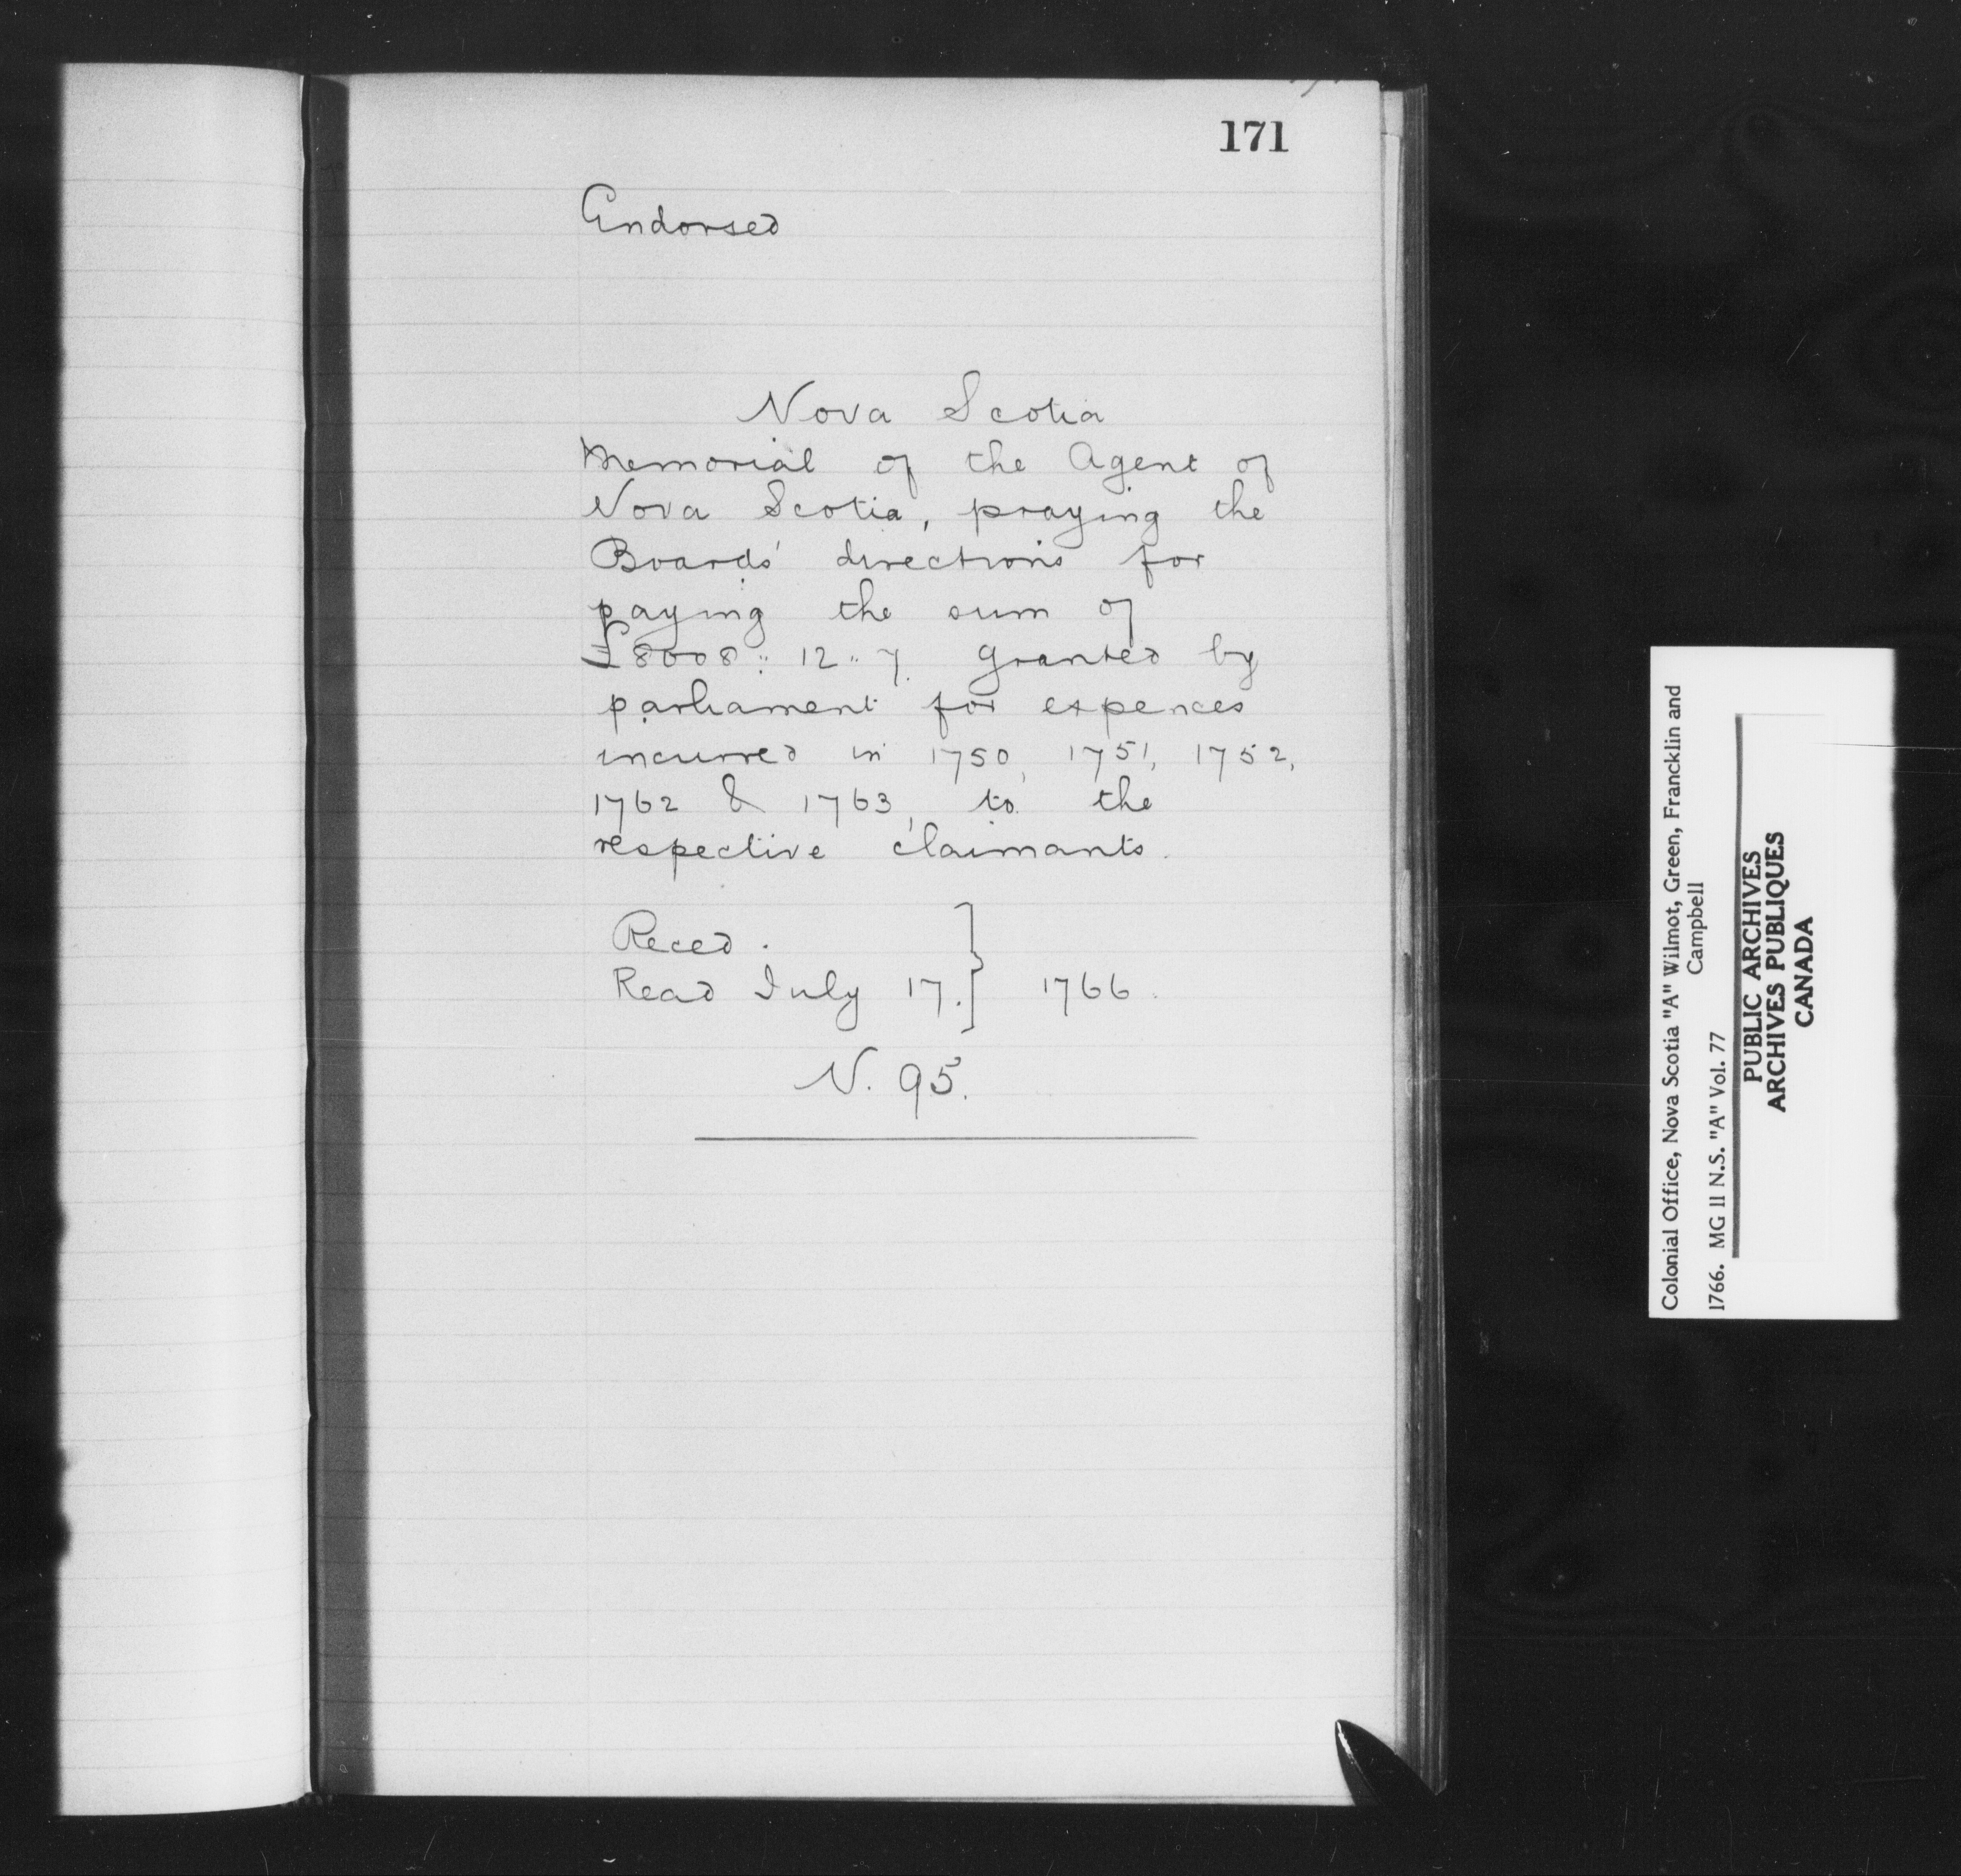 171
Endorsed
Nova Scotia
Memorial of the Agent of
Nova Scotia, praying the
Boards' directions for
paying the sum of
£8008 " 12 " 7. granted by
parliament for expences
incurred in 1750, 1751, 1752,
1762 & 1763, to the
respective claimants.
Reced.
Read July 17. } 1766.
N. 95.
Colonial Office, Nova Scotia "A" Wilmot, Green, Francklin and
Campbell
1766. MG 11 N.S. "A" Vol. 77
PUBLIC ARCHIVES
ARCHIVES PUBLIQUES
CANADA